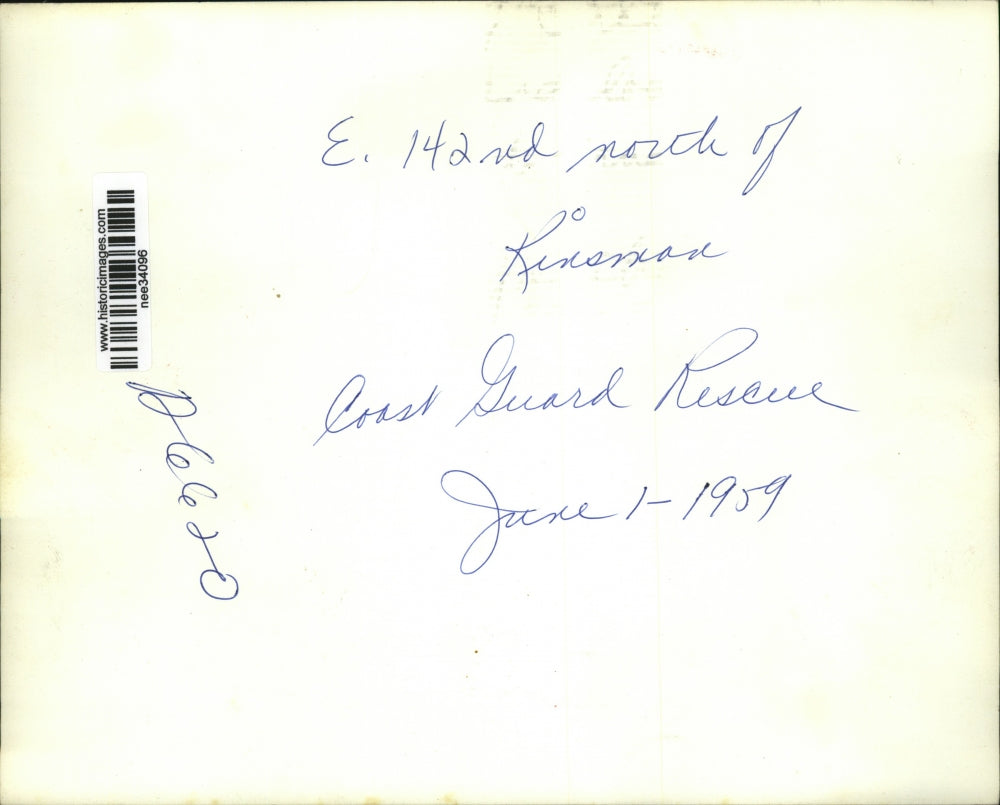 E. 142nd north of
Kinsman
Coast Guard Rescue
June 1-1959
www.historicimages.com
nee34096